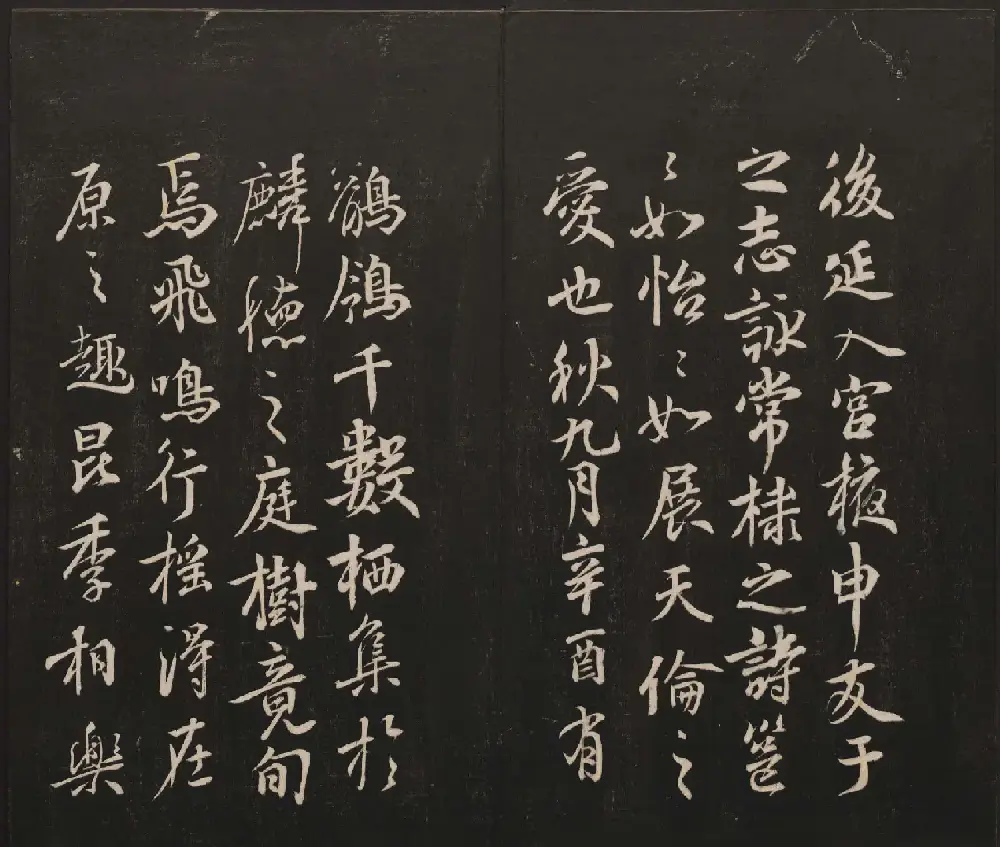 後延入宮掖申友于
之志詠常棣之詩邕
〻如怡〻如展天倫之
愛也秋九月辛酉有
鶺鴒千數栖集於
麟德之庭樹竟旬
焉飛鳴行摇得在
原之趣昆季相樂